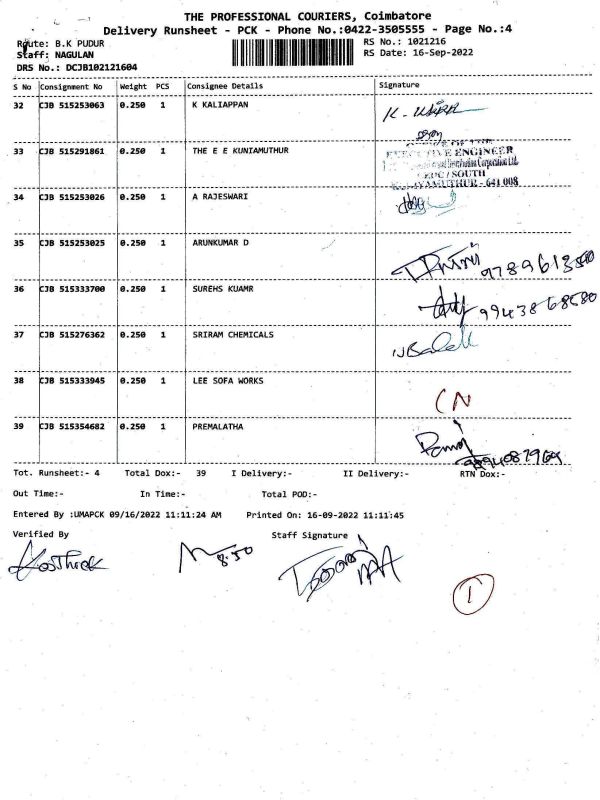 THE PROFESSIONAL COURIERS, Coimbatore
Delivery Runsheet - PCK - Phone No.:0422-3505555 - Page No.:4
Route: B.K PUDUR
RS No.: 1021216
Staff: NAGULAN
RS Date: 16-Sep-2022
DRS No.: DCJB102121604
S No Consignment No Weight PCS Consignee Details Signature
32 CJB 515253063 0.250 1 K KALIAPPAN
33 CJB 515291861 0.250 1 THE E E KUNIAMUTHUR
EXECUTIVE ENGINEER
Distribution Corporation Ltd.
SOUTH
- 641 008
34 CJB 515253026 0.250 1 A RAJESWARI
35 CJB 515253025 0.250 1 ARUNKUMAR D
36 CJB 515333700 0.250 1 SUREHS KUAMR
9943868580
37 CJB 515276362 0.250 1 SRIRAM CHEMICALS
38 CJB 515333945 0.250 1 LEE SOFA WORKS
CN
39 CJB 515354682 0.250 1 PREMALATHA
Tot. Runsheet:- 4 Total Dox:- 39 I Delivery:- II Delivery:- RTN Dox:-
Out Time:- In Time:- Total POD:-
Entered By :UMAPCK 09/16/2022 11:11:24 AM Printed On: 16-09-2022 11:11:45
Verified By Staff Signature
8.50
1